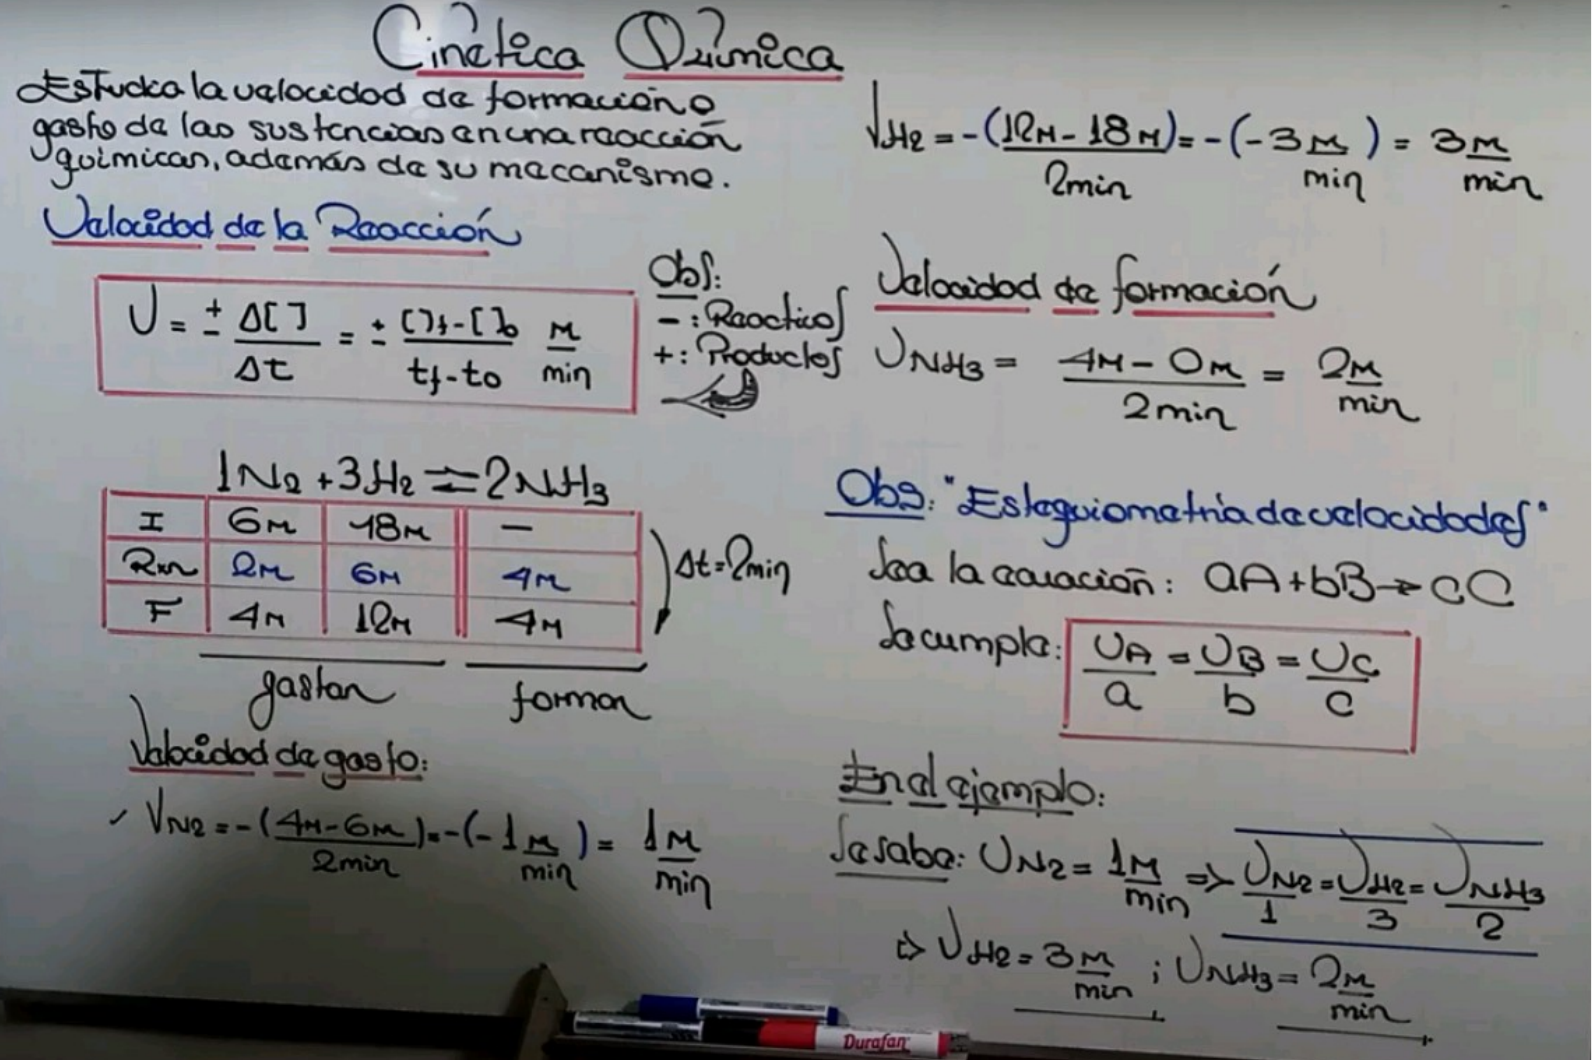 Cinética Química
Estudia la velocidad de formación o
gasto de las sustancias en una reacción
químicas, además de su mecanismo.
Velocidad de la Reacción
U = ± Δ[ ] / Δt = ± [ ]f - [ ]o / tf - to M/min
Obs:
- : Reactivos
+ : Productos
1N₂ + 3H₂ ⇌ 2NH₃
I 6M 18M —
Rxn 2M 6M 4M
F 4M 12M 4M
Δt = 2min
gastan forman
Velocidad de gasto:
✓ VN₂ = -(4M - 6M / 2min) = -(-1 M/min) = 1 M/min
VH₂ = -(12M - 18M / 2min) = -(-3 M/min) = 3 M/min
Velocidad de formación
UNH₃ = 4M - 0M / 2min = 2 M/min
Obs: "Estequiometría de velocidades"
Sea la ecuación: aA + bB → cC
Se cumple: UA/a = UB/b = UC/c
En el ejemplo:
Se sabe: UN₂ = 1 M/min ⇒ UN₂/1 = UH₂/3 = UNH₃/2
⇒ UH₂ = 3 M/min ; UNH₃ = 2 M/min
Durafan